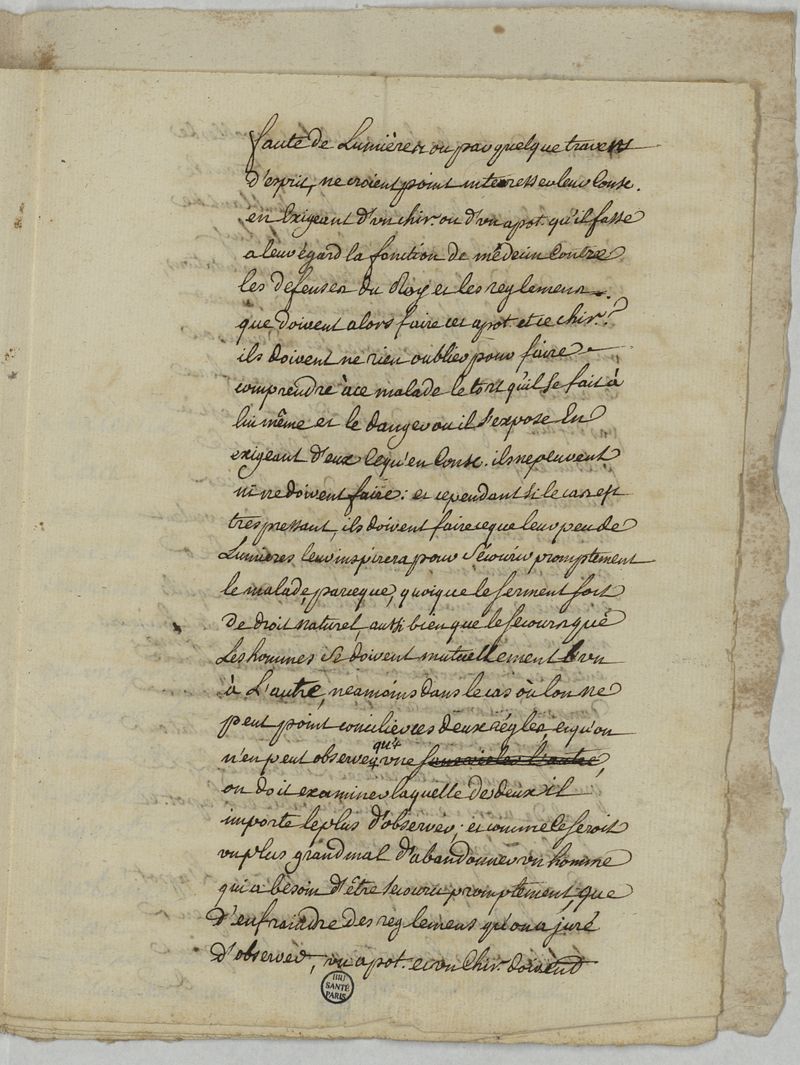 faute de Lumieres ou par quelque travers
d'esprit, ne croient point interesser leur Consc.
en Exigeant d'vn chir. ou d'vn apot. qu'il fasse
a leur égard la fonction de médecin Contre
les defenses du Roy et les reglemens.
que doivent alors faire cet apot. et ce chir.?
ils doivent ne rien oublier pour faire
comprendre à ce malade le tort qu'il se fait à
lui même et le danger ou il s'expose En
exigeant d'eux ce qu'en Consc. ils ne peuvent
ni ne doivent faire: et cependant si le cas est
tres pressant, ils doivent faire ce que leur peu de
Lumieres leur inspirera pour sécourir promptement
le malade, parceque, quoique le serment soit
de droit naturel, aussi bien que le secours que
Les hommes se doivent mutuellement L'vn
à L'autre, neamoins dans le cas où l'on ne
peut point concilier ces deux régles, et qu'on
n'en peut observer qu'vne sans violer l'autre,
on doit examiner laquelle des deux il
importe le plus d'observer; et comme ce seroit
vn plus grand mal d'abandonner vn homme
qui a besoin d'être secouru promptement, que
d'enfraindre des reglemens qu'on a juré
d'observer, vn apot. et vn Chir. doivent
BIU
SANTÉ
PARIS